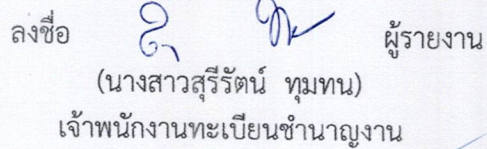 ลงชื่อ ผู้รายงาน
(นางสาวสุรีรัตน์ ทุมทน)
เจ้าพนักงานทะเบียนชำนาญงาน